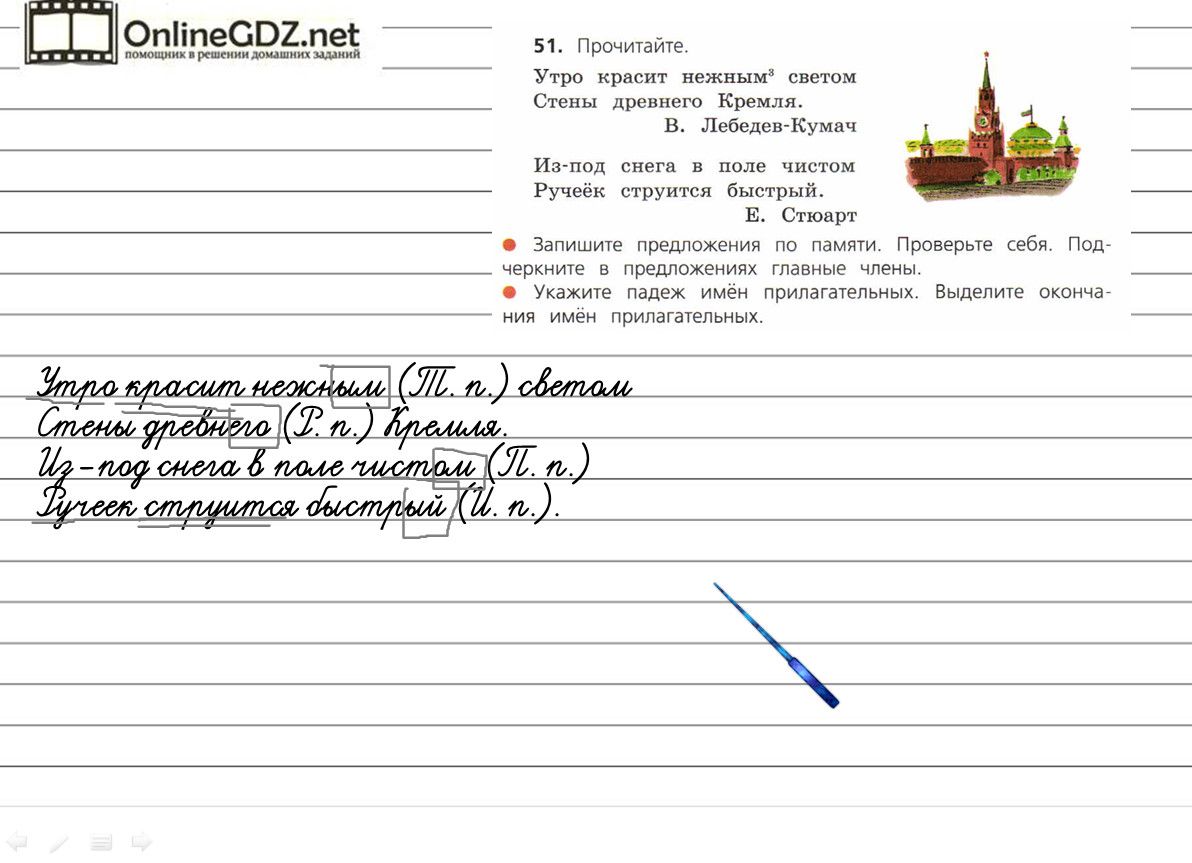 OnlineGDZ.net
помощник в решении домашних заданий
51. Прочитайте.
Утро красит нежным³ светом
Стены древнего Кремля.
В. Лебедев-Кумач
Из-под снега в поле чистом
Ручеёк струится быстрый.
Е. Стюарт
Запишите предложения по памяти. Проверьте себя. Под-
черкните в предложениях главные члены.
Укажите падеж имён прилагательных. Выделите оконча-
ния имён прилагательных.
Утро красит нежным (Т. п.) светом
Стены древнего (Р. п.) Кремля.
Из-под снега в поле чистом (П. п.)
Ручеек струится быстрый (И. п.).